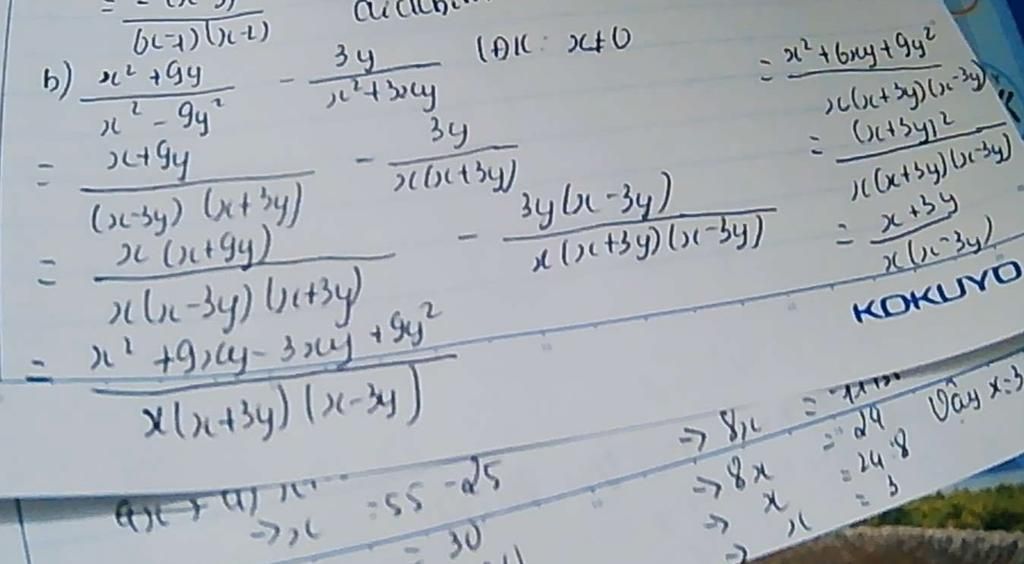 (x-1)(x-2)
b) x² + 9y / x² - 9y² - 3y / x² + 3xy (ĐK: x ≠ 0
= x+9y / (x-3y) (x+3y) - 3y / x(x+3y)
= x (x+9y) / x(x-3y) (x+3y) - 3y(x-3y) / x(x+3y)(x-3y)
= x² + 9xy - 3xy + 9y² / x(x+3y) (x-3y)
= x² + 6xy + 9y² / x(x+3y)(x-3y)
= (x+3y)² / x(x+3y)(x-3y)
= x+3y / x(x-3y)
KOKUYO
=> x = 55 - 25
= 30
=> 8x =
=> 8x = 24
=> x = 24:8
=> x = 3
Vậy x=3